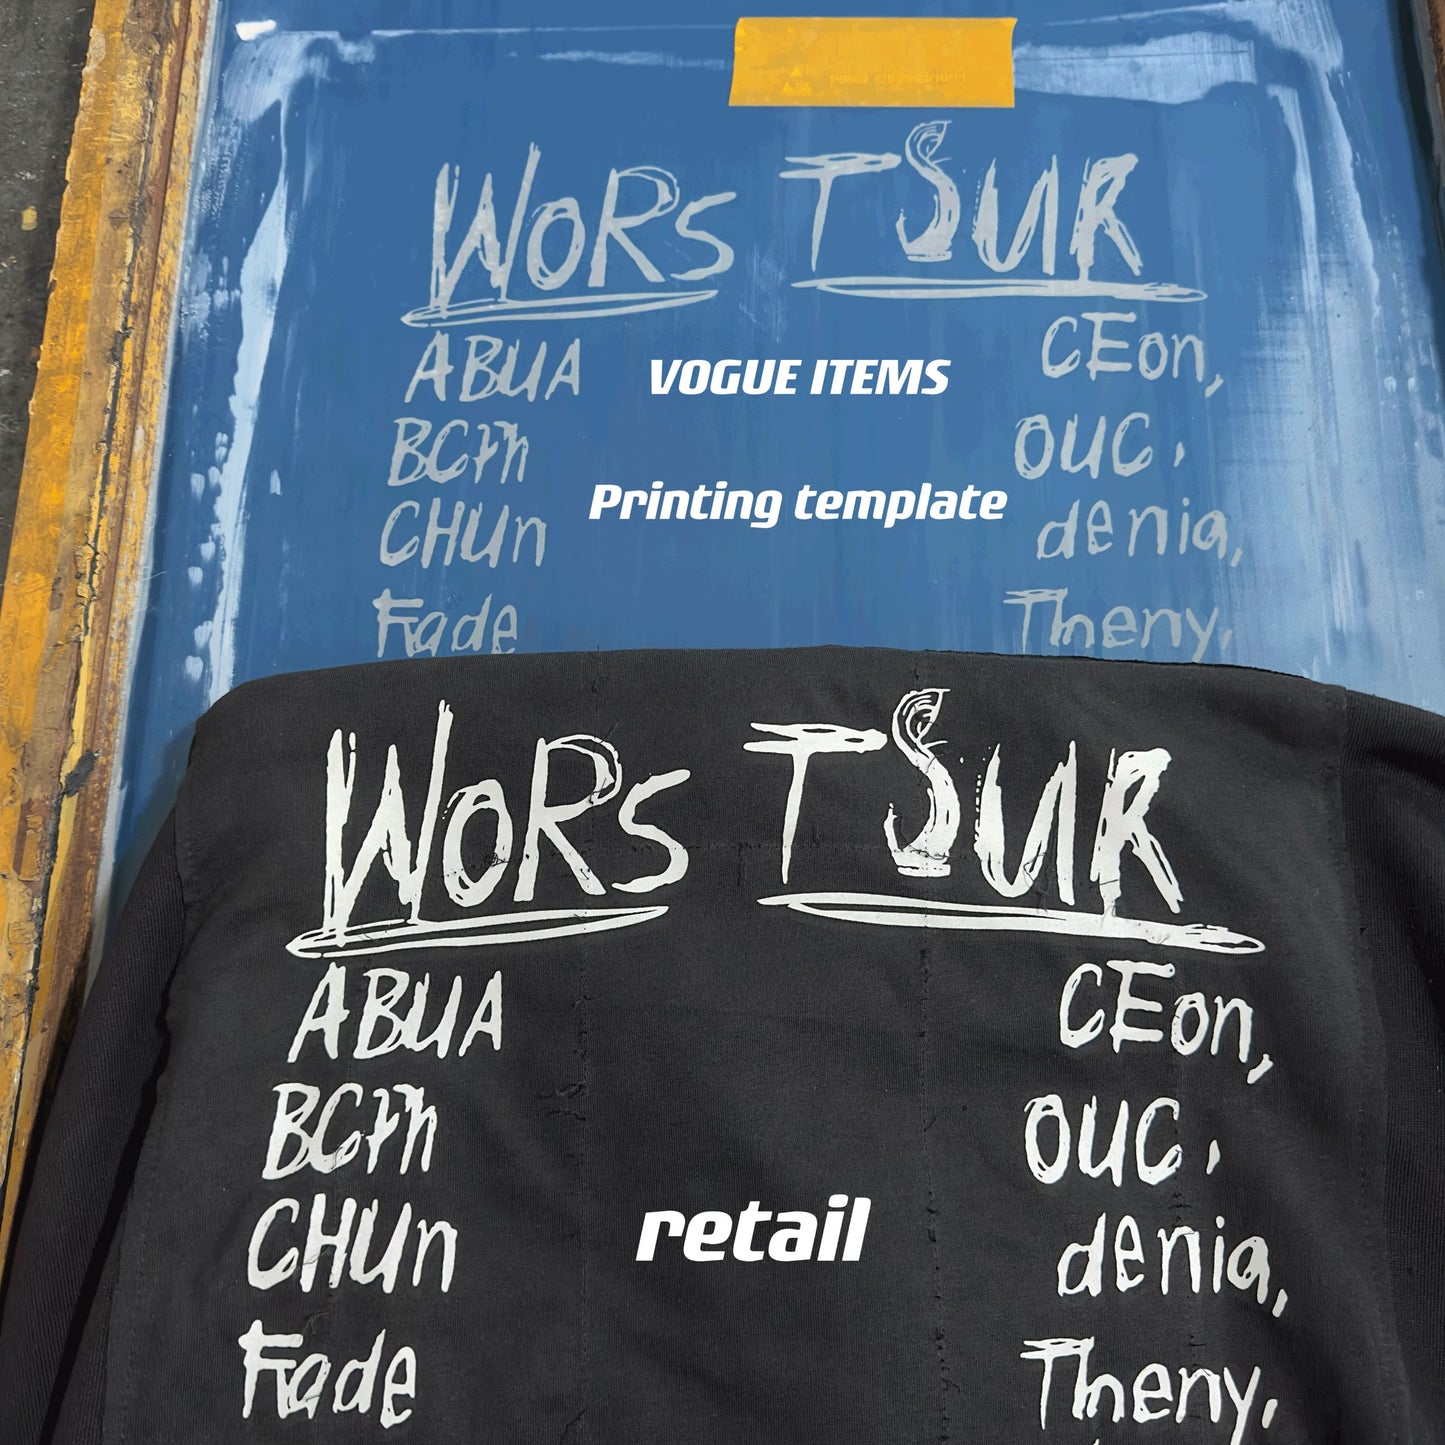 WORS TSUR
ABUA CEon,
VOGUE ITEMS
BCFh OUC,
Printing template
CHUn denia,
Fade Theny,
WORS TSUR
ABUA CEon,
BCFh OUC,
retail
CHUn denia,
Fade Theny,